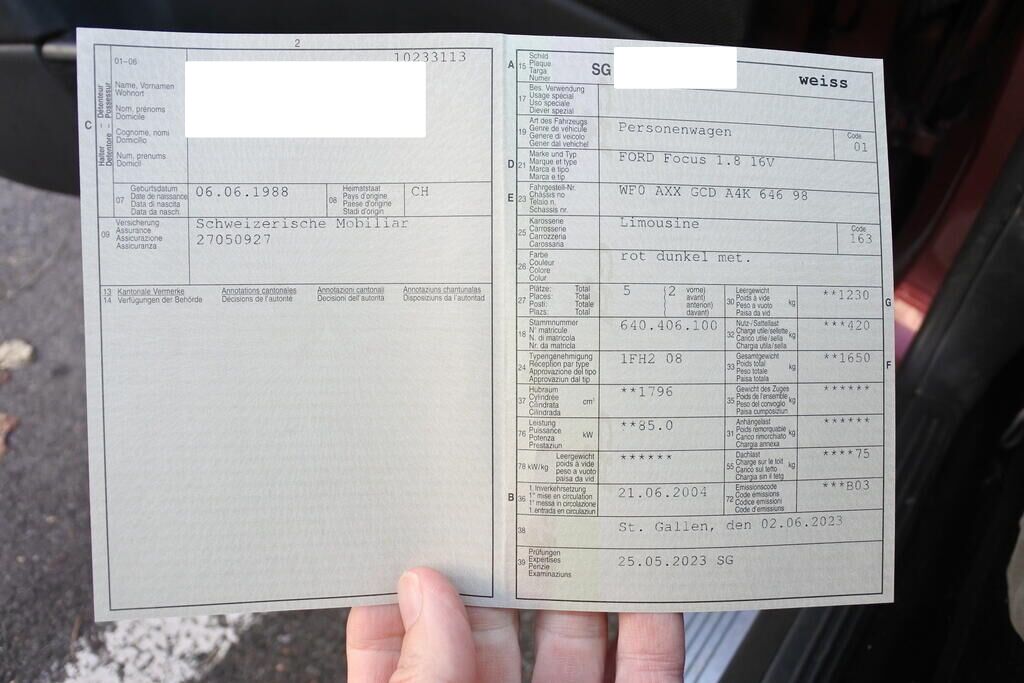 2
01-06
10233113
Halter - Détenteur
Detentore - Possessur
C
Name, Vornamen
Wohnort
Nom, prénoms
Domicile
Cognome, nomi
Domicilio
Num, prenums
Domicil
07
Geburtsdatum
Date de naissance
Data di nascita
Data da nasch.
06.06.1988
08
Heimatstaat
Pays d'origine
Paese d'origine
Stadi d'origin
CH
09
Versicherung
Assurance
Assicurazione
Assicuranza
Schweizerische Mobiliar
27050927
13 Kantonale Vermerke Annotations cantonales Annotazioni cantonali Annotaziuns chantunalas
14 Verfügungen der Behörde Décisions de l'autorité Decisioni dell'autorità Disposiziuns da l'autoritad
A
15
Schild
Plaque
Targa
Numer
SG
weiss
17
Bes. Verwendung
Usage spécial
Uso speciale
Diever spezial
19
Art des Fahrzeugs
Genre de véhicule
Genere di veicolo
Gener dal vehichel
Personenwagen
Code
01
D
21
Marke und Typ
Marque et type
Marca e tipo
Marca e tip
FORD Focus 1.8 16V
E
23
Fahrgestell-Nr.
Châssis no
Telaio n.
Schassis nr.
WF0 AXX GCD A4K 646 98
25
Karosserie
Carrosserie
Carrozzeria
Carossaria
Limousine
Code
163
26
Farbe
Couleur
Colore
Colur
rot dunkel met.
27
Plätze: Total
Places: Total
Posti: Totale
Plazs: Total
5
(2
vorne)
avant)
anteriori)
davant)
30
Leergewicht
Poids à vide
Peso a vuoto
Paisa da vid
kg
**1230
G
18
Stammnummer
N° matricule
N. di matricola
Nr. da matricla
640.406.100
32
Nutz-/Sattellast
Charge utile/sellette
Carico utile/sella
Chargia utila/sella
kg
***420
24
Typengenehmigung
Réception par type
Approvazione del tipo
Approvaziun dal tip
1FH2 08
33
Gesamtgewicht
Poids total
Peso totale
Paisa totala
kg
**1650
F
37
Hubraum
Cylindrée
Cilindrata
Cilindrada
cm³
**1796
35
Gewicht des Zuges
Poids de l'ensemble
Peso del convoglio
Paisa cumposiziun
kg
******
76
Leistung
Puissance
Potenza
Prestaziun
kW
**85.0
31
Anhängelast
Poids remorquable
Carico rimorchiato
Chargia annexa
kg
******
78 kW/kg
Leergewicht
poids à vide
peso a vuoto
paisa da vid
******
55
Dachlast
Charge sur le toit
Carico sul tetto
Chargia sin il tetg
kg
****75
B
36
1. Inverkehrsetzung
1re mise en circulation
1a messa in circolazione
1. entrada en circulaziun
21.06.2004
72
Emissionscode
Code émissions
Codice emissioni
Code d'emissiuns
***B03
38
St. Gallen, den 02.06.2023
39
Prüfungen
Expertises
Perizie
Examinaziuns
25.05.2023 SG